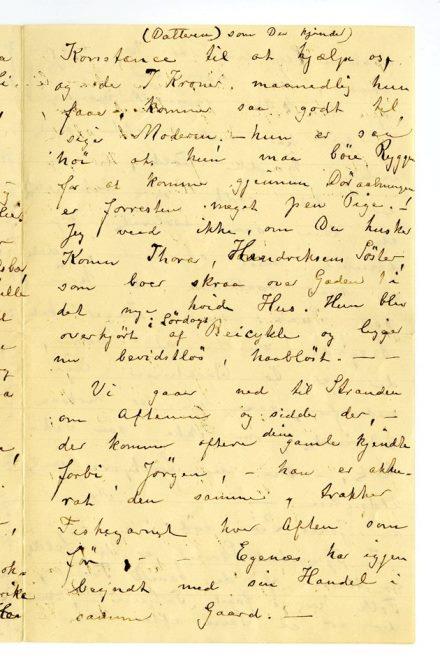 (Datteren) som Du kjender)
Konstance til at hjælpe os,
og de 7 Kroner maanedlig hun
faar, kommer saa godt til,
siger Moderen. – hun er saa
höi at hun maa böie Ryggen
for at komme gjennem Döraabningen
er forresten meget pen Pige. –
Jeg veed ikke, om Du husker
Konen Thora, Hendriksens Söster,
som boer skraa over Gaden i
det nye hvide Hus. Hun blev
i Lördags
overkjört af Beicykle og ligger
nu bevidstlös, haablöst. – –
Vi gaaer ned til Stranden
om Aftenen og sidde der, –
der kommer oftere dine gamle kjendte
forbi Jörgen, – han er akku-
rat den samme, trækker
Fiskegarnet hver Aften som
för, – – Egenæs har igjen
begyndt med sin Handel i
samme Gaard. –